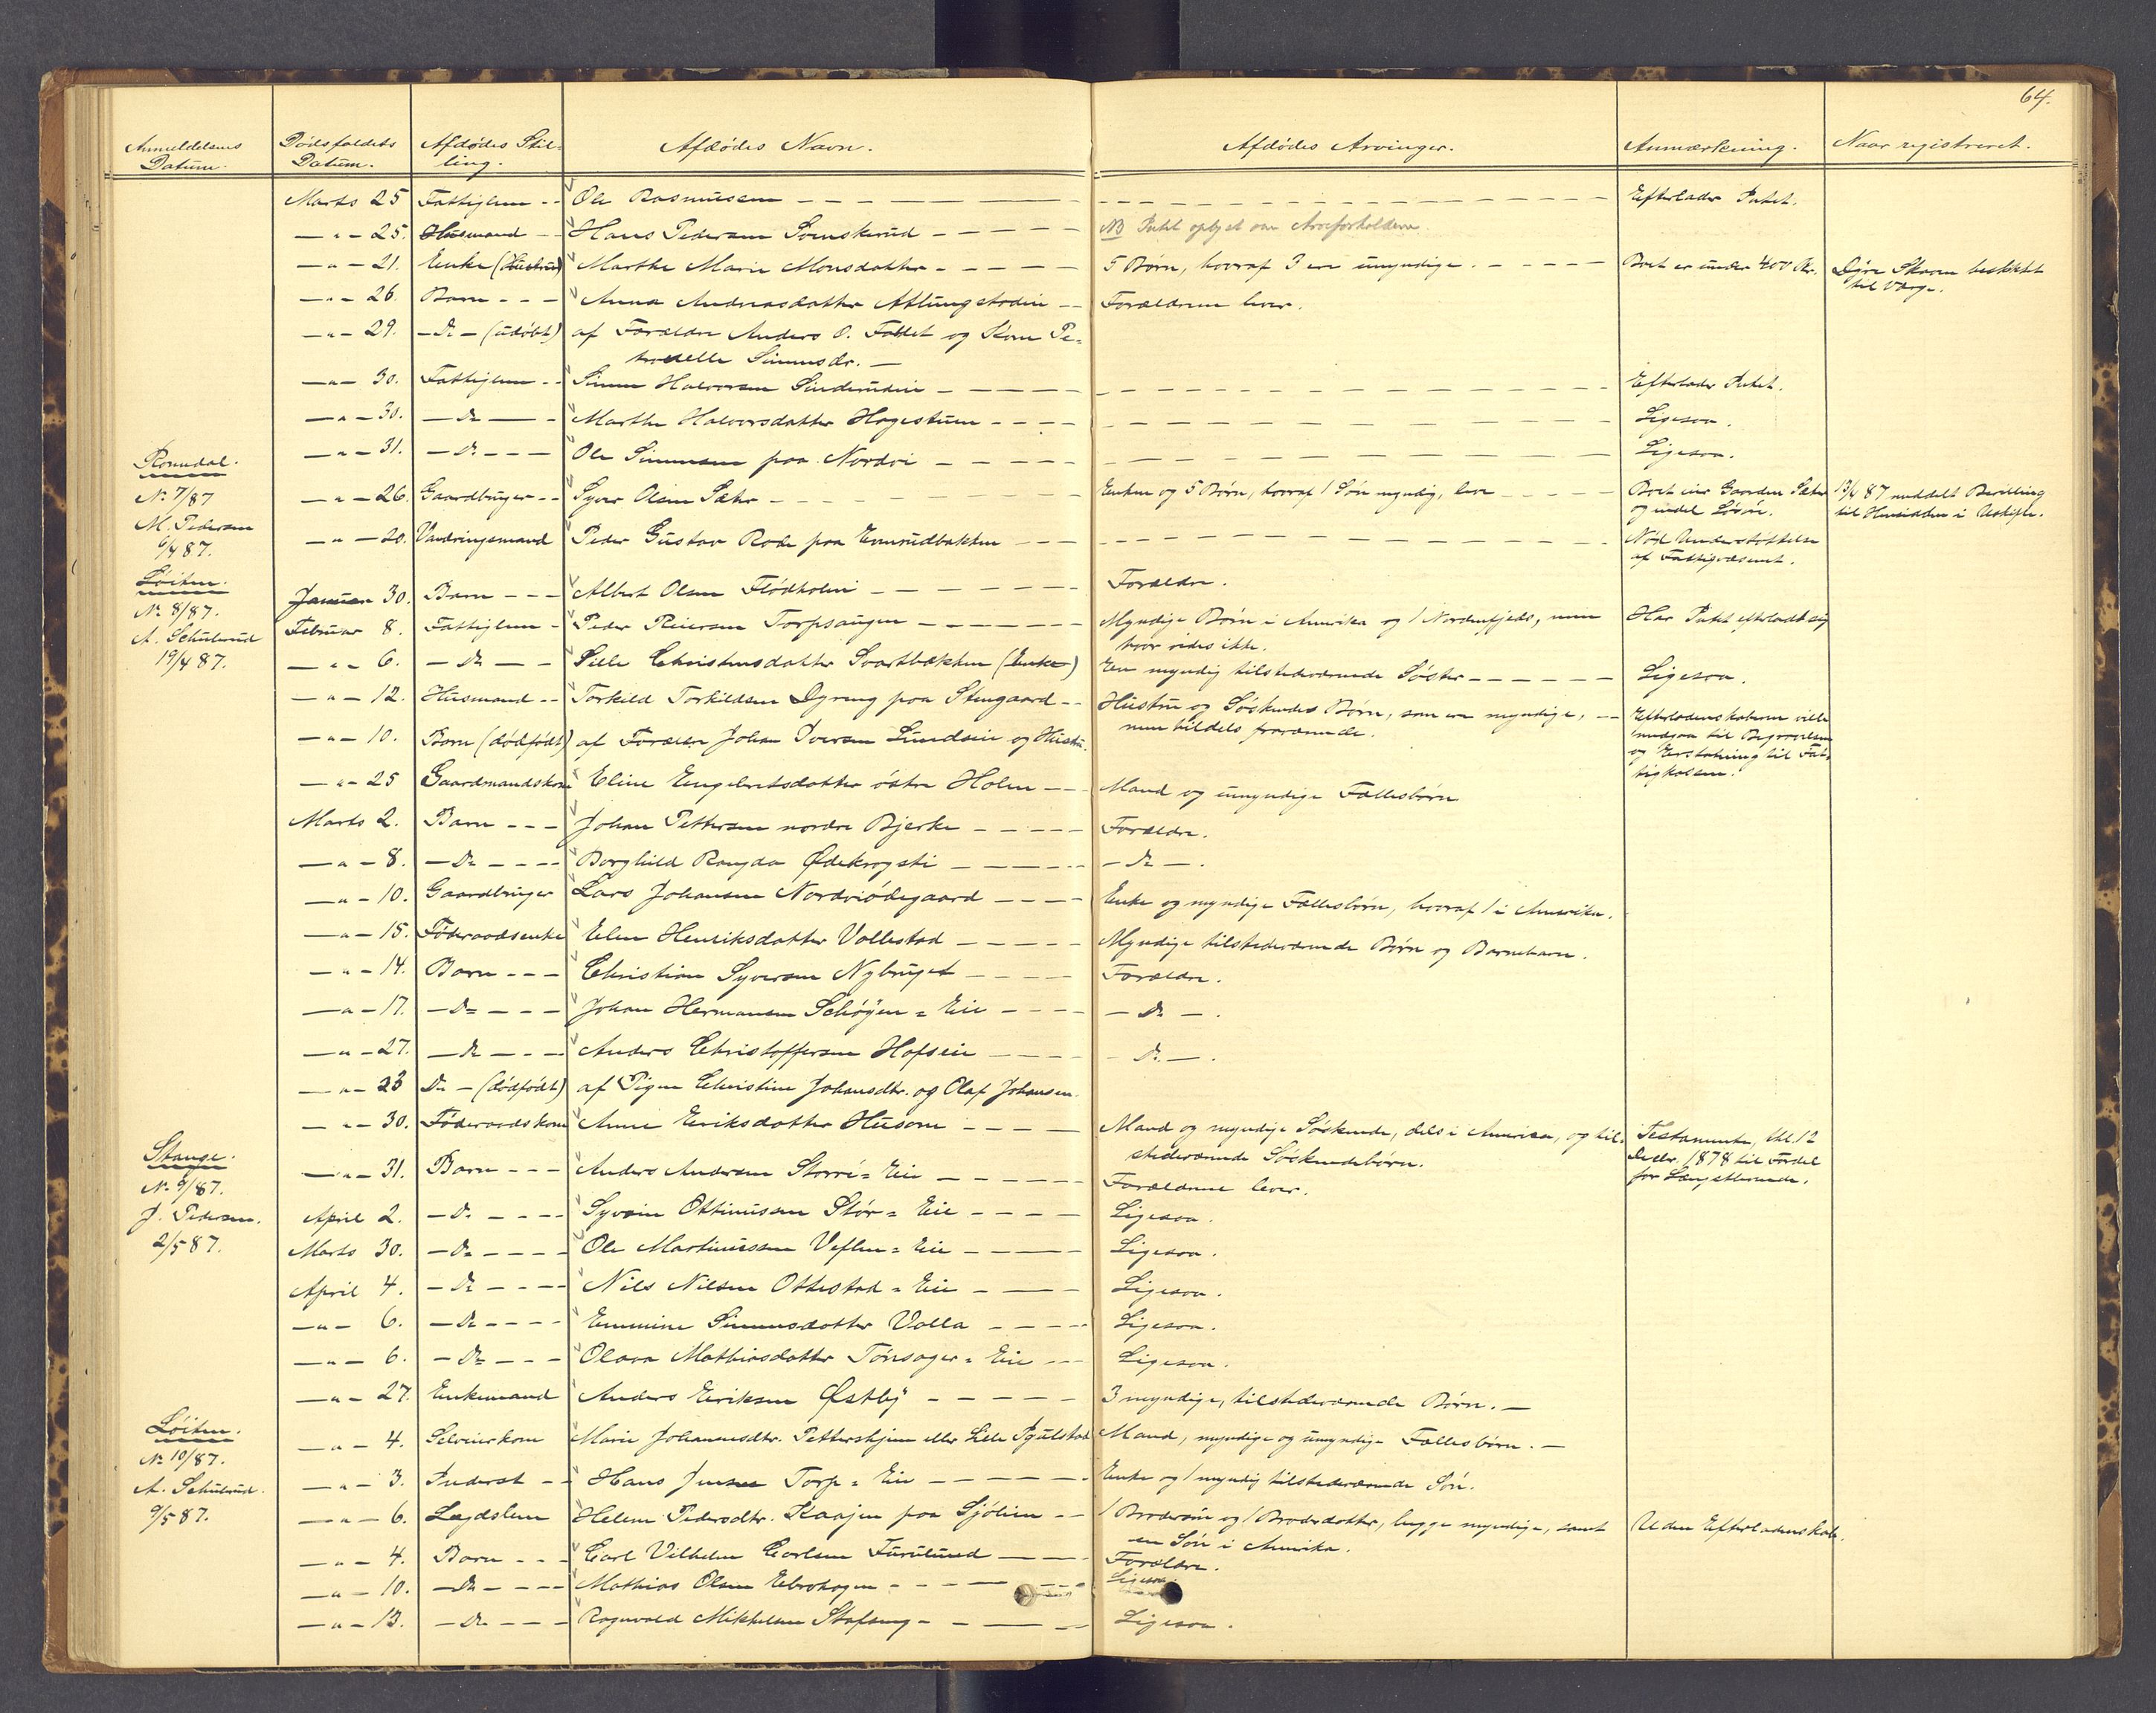 64.
Anmeldelsens Datum.
Dødsfaldets Datum.
Afdødes Stilling.
Afdødes Navn.
Afdødes Arvinger.
Anmærkning.
Naar registreret.
Marts 25 Fattiglem -- Ole Rasmussen - - - Efterlader Intet.
— " — 25. Husmand -- Hans Pedersen Svenskerud - - - NB Intet oplyst om Arveforholdene.
— " — 21. Enke (Hustru) Marthe Marie Monsdatter - - - 5 Børn, hvoraf 3 ere umyndige. - - - Boet er under 400 Kr. Dyre Skaren beskikket
til Værge.
— " — 26. Barn - - - Anna Andreasdatter Atlungstadeie -- Forældrene lever.
— " — 29. — Do — (udøbt) af Forældre Anders O. Fallet og Karn Pe-
tronelle Simensdr. —
— " — 30. Fattiglem -- Simen Halvorsen Sinderudeie - - - Efterlader Intet.
— " — 30. — Do — - Marthe Halvorsdatter Hagestuen - - - Ligesaa.
— " — 31. — Do - - - Ole Simensen paa Nordvi - - - Ligesaa.
Romedal.
No 7/87
M. Pedersen
6/4 87.
— " — 26. Gaardbruger -- Syver Olsen Sæter - - - Enken og 5 Børn, hvoraf 1 Søn myndig, lever - - - Boet eier Gaarden Sæter
og endel Løsøre.
13/4 87 meddelt Bevilling
til Hensidden i Uskifte.
— " — 20. Vandringsmand Peder Gustav Rode paa Emrudbakken - - - Nød Understøttelse
af Fattigvæsenet.
Løiten.
No 8/87.
A. Schulerud
19/4 87.
Januar 30. Barn - - - Albert Olsen Flødholm - - - Forældre.
Februar 8. Fattiglem - Peder Reiersen Torpsaugen - - - Myndige Børn i Amerika og 1 Nordenfjelds, men
hvor vides ikke.
Har Intet efterladt sig
— " — 6. — Do — - Sille Christensdatter Svartbækken (Enke) En myndig tilstedeværende Søster - - - Ligesaa.
— " — 12. Husmand -- Torkild Torkildsen Dyreng paa Stengaard -- Hustru og Søskendes Børn, som ere myndige, --
men tildels fraværende.
Efterladenskaberne ville
medgaa til Begravelsen
og Erstatning til Fat-
tigkassen.
— " — 10. Barn (dødfødt) af Forældr Johan Iversen Lundseie og Hustru.
— " — 25 Gaardmandskone Eline Engebretsdatter østre Holen -- Mand og umyndige Fællesbørn
Marts 2. Barn - - - Johan Pettersen nordre Bjerke - - - Forældre.
— " — 8. — Do - - - Borghild Ragda Ødekrogsti - - - — Do —.
— " — 10. Gaardbruger Lars Johansen Nordviødegaard - - - Enke og myndige Fællesbørn, hvoraf 1 i Amerika.
— " — 15. Føderaadsenke Elen Henriksdatter Vollestad - - - Myndige tilstedeværende Børn og Barnebarn.
— " — 14. Barn - - - Christian Syversen Nybruget - - - Forældre.
— " — 17. — Do - - - Johan Hermansen Schøyen = Eie - - - — Do —.
— " — 27. — Do - - - Anders Christoffersen Hofseie - - - Do —.
— " — 23 Do — (dødfødt) af Pigen Christine Johansdtr. og Olaf Johansen.
— " — 30. Føderaadskone Anne Eriksdatter Husom - - - Mand og myndige Søskende, dels i Amerika, og til-
stedeværende Søskendebørn.
Testamente, thl. 12
Decbr. 1878 til Fordel
for Længstlevende.
Stange.
No 9/87.
J. Pedersen.
2/5 87.
— " — 31. Barn - - - Anders Andersen Storri = Eie - - - Forældrene lever.
April 2. — Do - - - Syverin Ottinussen Stør = Eie - - - Ligesaa.
Marts 30. — Do - - - Ole Martinussen Veflen = Eie - - - Ligesaa.
April 4. — Do - - - Nils Nilsen Ottestad = Eie - - - Ligesaa.
— " — 6. — Do - - - Emmine Simensdatter Volla - - - Ligesaa.
— " — 6. — Do - - - Olava Mathiasdatter Tønsager = Eie - - - Ligesaa.
— " — 27. Enkemand Anders Eriksen Østby - - - 3 myndige, tilstedeværende Børn. —
Løiten.
No 10/87.
A. Schulerud.
9/5 87.
— " — 4. Selveierkone Marie Johannesdtr. Pettershjem eller Lille Mand, myndige og umyndige Fællesbørn. —
— " — 3. Inderst -- Hans Jensen Torp = Eie - - - Enke og 1 myndig tilstedeværende Søn.
— " — 6. Lægdslem Helene Pedersdtr. Kaajen paa Sjølien -- 1 Brodersøn og 1 Broderdatter, begge myndige, samt
en Søn i Amerika.
Uden Efterladenskab.
— " — 4. Barn - - - Carl Vilhelm Carlsen Furulund - - - Forældre.
— " — 10. — Do - - - Mathias Olsen Ebrohagen - - - Ligesaa.
— " — 13. — Do - - - Ragnvald Mikkelsen Stafseng - - - Ligesaa.